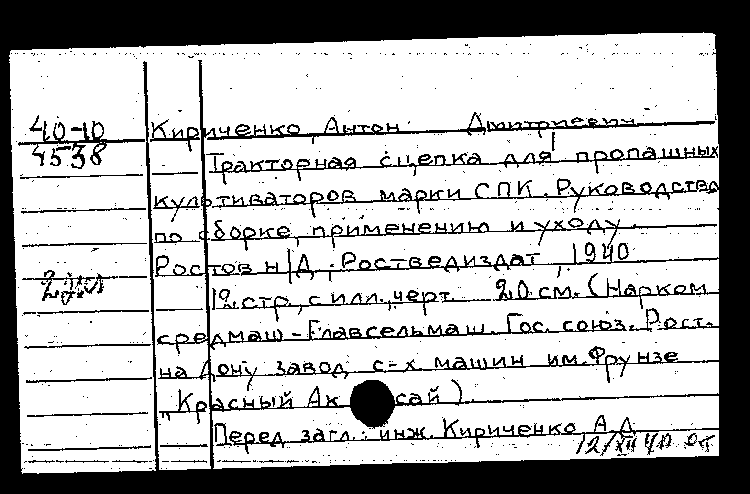 40-10 Кириченко, Антон Дмитриевич
4538 Тракторная сцепка для пропашных
культиваторов марки СПК. Руководство
по сборке, применению и уходу.
Ростов н/Д, Ростведиздат, 1940
2 экз 12 стр., с илл., черт. 20 см. (Нарком
средмаш - Главсельмаш. Гос. союз. Рост.
на Дону завод с-х. машин им. Фрунзе
"Красный Аксай")
Перед загл.: инж. Кириченко А.Д.
12/XII 40